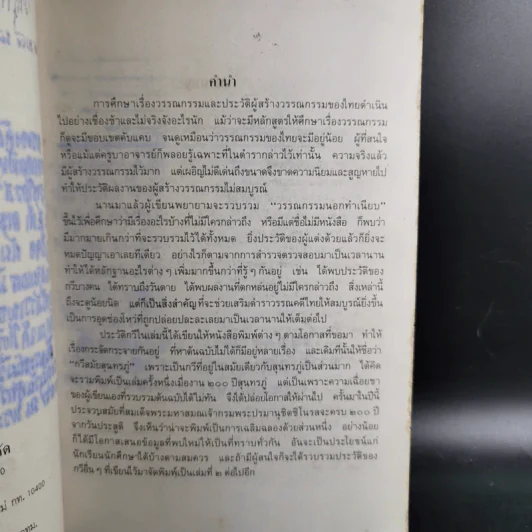 คำนำ
การศึกษาเรื่องวรรณกรรมและประวัติผู้สร้างวรรณกรรมของไทยดำเนิน
ไปอย่างเชื่องช้าและไม่จริงจังอะไรนัก แม้ว่าจะมีหลักสูตรให้ศึกษาเรื่องวรรณกรรม
ก็ดูจะมีขอบเขตคับแคบ จนดูเหมือนว่าวรรณกรรมของไทยจะมีอยู่น้อย ผู้ที่สนใจ
หรือแม้แต่ครูบาอาจารย์ก็พลอยรู้เฉพาะที่ในตำรากล่าวไว้เท่านั้น ความจริงแล้ว
มีผู้สร้างวรรณกรรมไว้มาก แต่เผอิญไม่ดีเด่นถึงขนาดจึงขาดความนิยมและสูญหายไป
ทำให้ประวัติผลงานของผู้สร้างวรรณกรรมไม่สมบูรณ์
นานมาแล้วผู้เขียนพยายามจะรวบรวม "วรรณกรรมนอกทำเนียบ"
ขึ้นไว้เพื่อศึกษาว่ามีเรื่องอะไรบ้างที่ไม่มีใครกล่าวถึง หรือมีแต่ชื่อไม่มีหนังสือ ก็พบว่า
มีมากมายเกินกว่าที่จะรวบรวมไว้ได้ทั้งหมด ยิ่งประวัติของผู้แต่งด้วยแล้วก็ยิ่งจะ
หมดปัญญาเอาเลยทีเดียว อย่างไรก็ตามจากการสำรวจตรวจสอบมาเป็นเวลานาน
ทำให้ได้หลักฐานอะไรต่าง ๆ เพิ่มมากขึ้นกว่าที่รู้ ๆ กันอยู่ เช่น ได้พบประวัติของ
กวีบางคน ได้ทราบถึงวันตาย ได้พบผลงานที่ตกหล่นอยู่ไม่มีใครกล่าวถึง สิ่งเหล่านี้
ถึงจะดูน้อยนิด แต่ก็เป็นสิ่งสำคัญที่จะช่วยเสริมตำราวรรณคดีไทยให้สมบูรณ์ยิ่งขึ้น
เป็นการอุดช่องโหว่ที่ถูกปล่อยปละละเลยมาเป็นเวลานานให้เต็มต่อไป
ประวัติกวีในเล่มนี้ได้เขียนให้หนังสือพิมพ์ต่าง ๆ ตามโอกาสที่ขอมา ทำให้
เรื่องกระจัดกระจายกันอยู่ ที่หาต้นฉบับไม่ได้ก็มีอยู่หลายเรื่อง และเดิมทีนั้นให้ชื่อว่า
"กวีสมัยสุนทรภู่" เพราะเป็นกวีที่อยู่ในสมัยเดียวกับสุนทรภู่เป็นส่วนมาก ได้คิด
จะรวมพิมพ์เป็นเล่มครั้งหนึ่งเมื่องาน ๒๐๐ ปีสุนทรภู่ แต่เป็นเพราะความเฉื่อยชา
ของผู้เขียนเองที่รวบรวมต้นฉบับได้ไม่ทัน จึงได้ปล่อยโอกาสให้ผ่านไป ครั้นมาในปีนี้
ประจวบสมัยที่สมเด็จพระมหาสมณเจ้ากรมพระปรมานุชิตชิโนรสจะครบ ๒๐๐ ปี
จากวันประสูติ จึงเห็นว่าน่าจะพิมพ์เป็นการเฉลิมฉลองด้วยส่วนหนึ่ง อย่างน้อย
ก็ได้มีโอกาสเสนอข้อมูลที่พบใหม่ให้เป็นที่ทราบทั่วกัน อันจะเป็นประโยชน์แก่
นักเรียนนักศึกษาได้บ้างตามสมควร และถ้ามีผู้สนใจก็จะได้รวบรวมประวัติของ
กวีอื่น ๆ ที่เขียนไว้มาจัดพิมพ์เป็นเล่มที่ ๒ ต่อไปอีก
กท. 10400